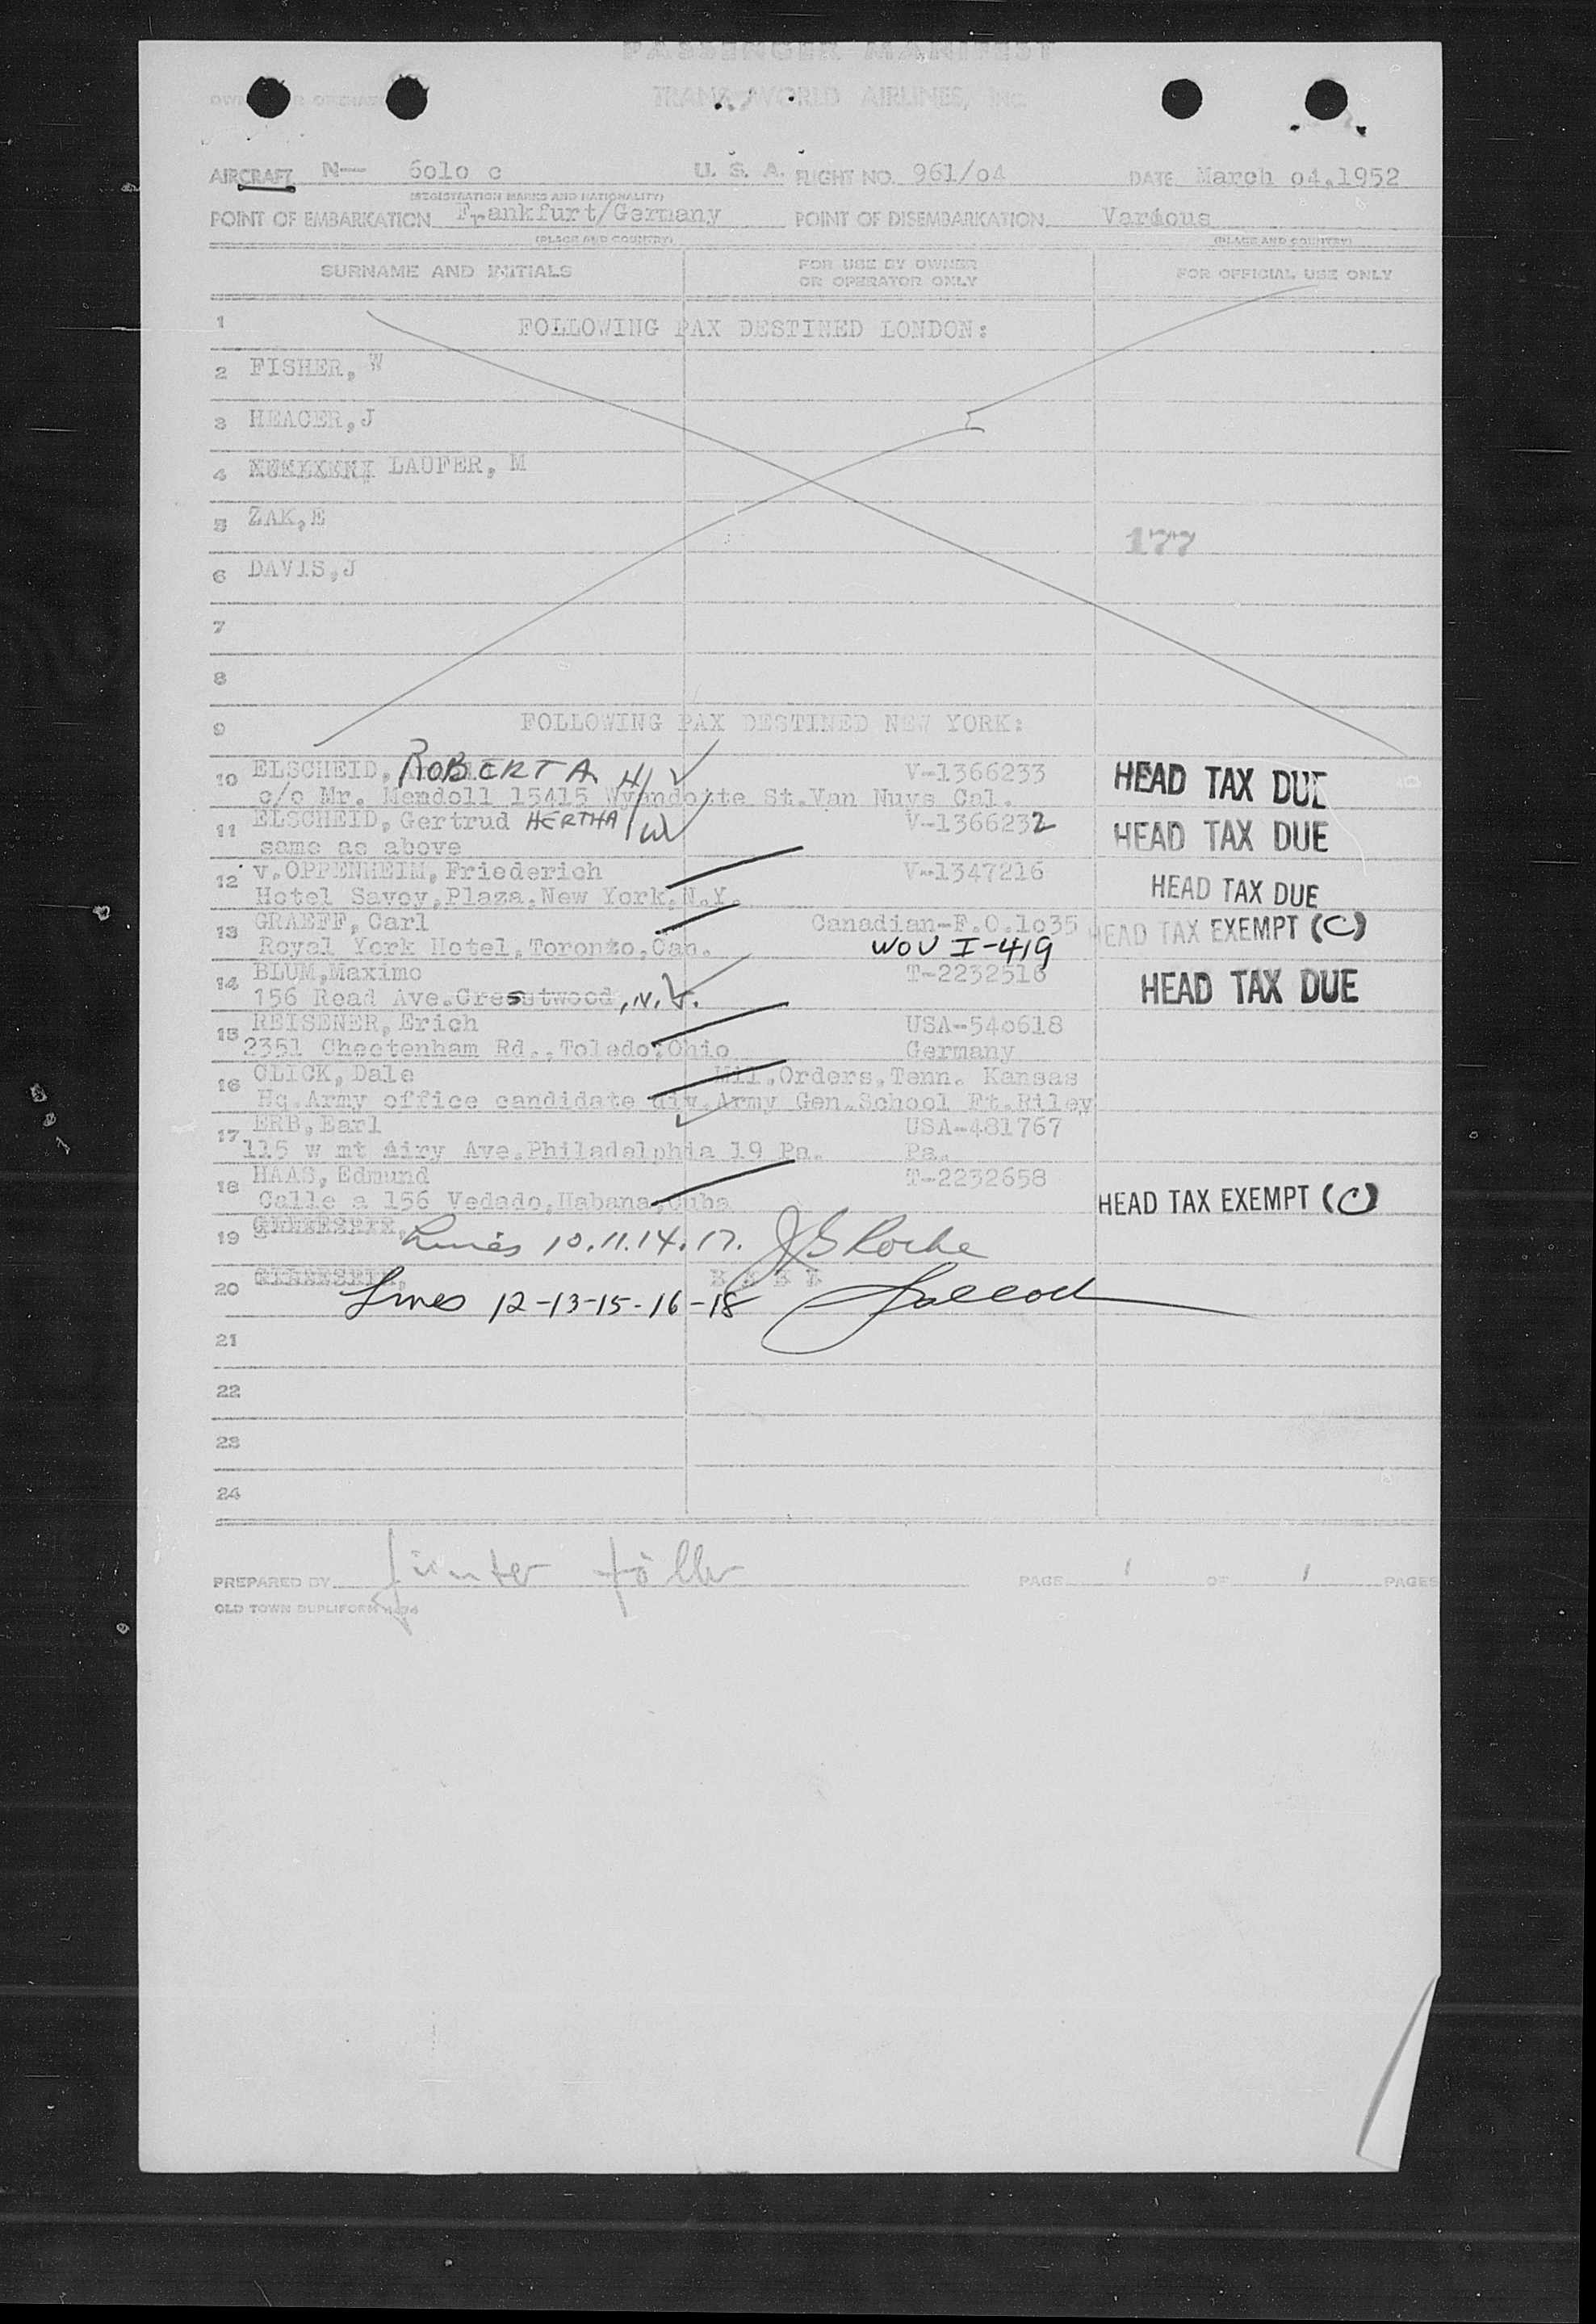 PASSENGER MANIFEST
TRANS WORLD AIRLINES, INC.
AIRCRAFT N— 6olo c U. S. A. FLIGHT NO. 961/o4 DATE March o4,1952
(REGISTRATION MARKS AND NATIONALITY)
POINT OF EMBARKATION Frankfurt/Germany POINT OF DISEMBARKATION Various
(PLACE AND COUNTRY) (PLACE AND COUNTRY)
SURNAME AND INITIALS FOR USE BY OWNER OR OPERATOR ONLY FOR OFFICIAL USE ONLY
1 FOLLOWING PAX DESTINED LONDON:
2 FISHER, W
3 HEAGER,J
4 LAUFER, M
5 ZAK,E
177
6 DAVIS,J
7
8
9 FOLLOWING PAX DESTINED NEW YORK:
10 ELSCHEID, ROBERT A. H/ V-1366233 HEAD TAX DUE
c/o Mr. Mendoll 15415 Wyandotte St.Van Nuys Cal.
11 ELSCHEID, Gertrud HERTHA /W V-1366232 HEAD TAX DUE
same as above
12 v.OPPENHEIM, Friederich V-1347216 HEAD TAX DUE
Hotel Savoy,Plaza,New York,N.Y.
13 GRAEFF, Carl Canadian-F.O.1o35 HEAD TAX EXEMPT (C)
Royal York Hotel,Toronto,Can. WOV I-419
14 BLUM,Maximo T-2232516 HEAD TAX DUE
156 Read Ave.Crestwood, N.Y.
15 REISENER, Erich USA-54o618
2351 Cheetenham Rd., Toledo,Ohio Germany
16 CLICK, Dale Mil.Orders,Tenn. Kansas
Hq.Army office candidate div.Army Gen.School Ft.Riley
17 ERB, Earl USA-481767
115 w mt Airy Ave.Philadelphia 19 Pa. Pa.
18 HAAS, Edmund T-2232658 HEAD TAX EXEMPT (C)
Calle a 156 Vedado,Habana,Cuba
19 Lines 10.11.14.17. JS Roche
20 Lines 12-13-15-16-18
21
22
23
24
PREPARED BY PAGE 1 OF 1 PAGES
OLD TOWN DUPLIFORM